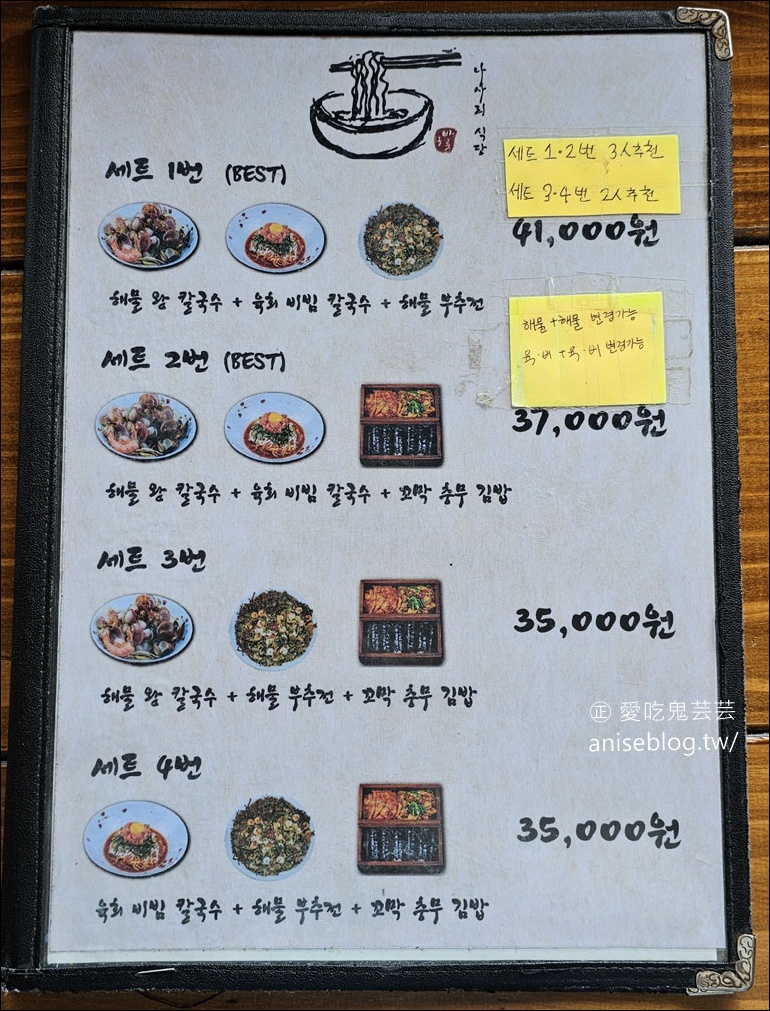 나사리 식당
세트 1번 (BEST)
세트 1·2번 3人추천
세트 3·4번 2人추천
41,000원
해물 왕 칼국수 + 육회 비빔 칼국수 + 해물 부추전
해물+해물 변경가능
육·비 + 육·비 변경가능
세트 2번 (BEST)
37,000원
해물 왕 칼국수 + 육회 비빔 칼국수 + 꼬막 충무 김밥
세트 3번
35,000원
해물 왕 칼국수 + 해물 부추전 + 꼬막 충무 김밥
正 愛吃鬼芸芸
aniseblog.tw/
세트 4번
35,000원
육회 비빔 칼국수 + 해물 부추전 + 꼬막 충무 김밥